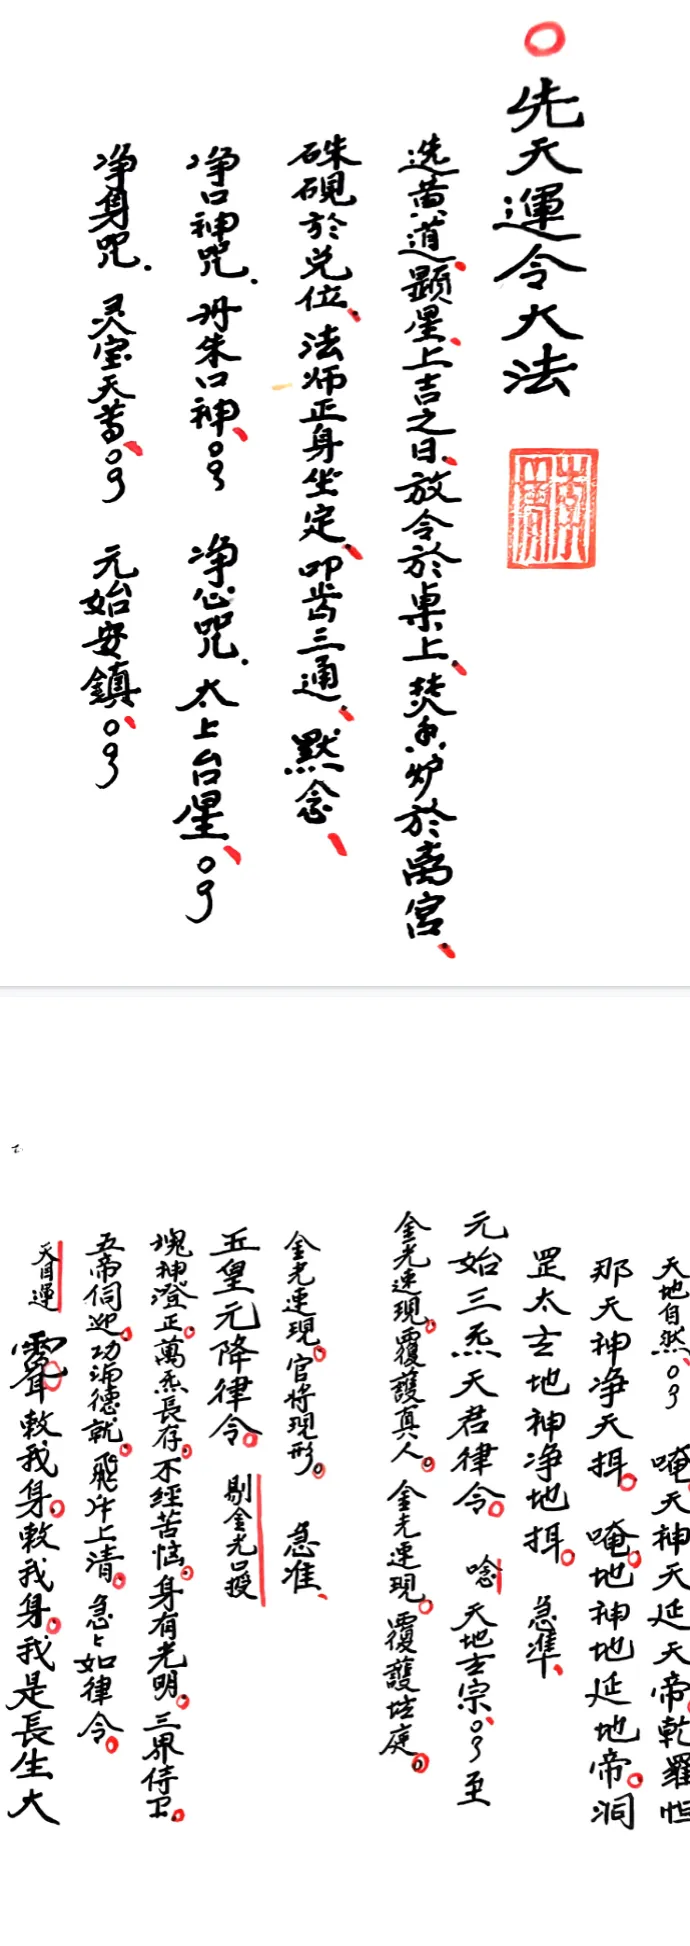 先天運令大法
选黄道、顕星、上吉之日、放令於桌上、焚香炉於离宫、
硃硯於兑位、法师正身坐定、叩齿三通、默念、
净口神咒.丹朱口神、○○ 净心咒.太上台星、○○
净身咒.灵宝天尊、○○ 元始安鎮、○○
天地自然、○○ 唵天神天延天帝。乾羅怛
那天神净天揖。唵地神地延地帝。洞
罡太玄地神净地揖。 急準、
元始三炁天君律令。 唸 天地玄宗、○○至
金光速現。覆護真人。金光速現。覆護坛庭。
金光速現。官将現形。 急准、
五皇元降律令。 剔金光
魂神澄正。萬炁長存。不經苦惱。身有光明。三界侍卫。
五帝伺迎。功满德就。飛升上清。急々如律令。
天目運 敕我身。敕我身。我是長生大